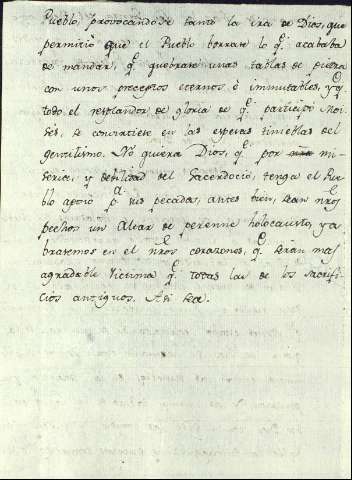 Pueblo, provocandose tanto la ira de Dios, que
permitió que el Pueblo borrase lo q.e acababa
de mandar, q.e quebrase unas tablas de piedra
con unos preceptos eternos é immutables, y q.e
todo el resplandor de gloria de q.e participó Moi-
sés, se convirtiese en las espesas tinieblas del
gentilismo. No quiera Dios, q.e por mi-
seria, y debilidad del Sacerdocio, tenga el Pue-
blo apoió p.a sus pecados, antes bien, sean nros
pechos un Altar de perenne holocausto, y a
brasemos en el nros corazones, q.e serán mas
agradable Victima q.e todas las de los sacrifi-
cios antiguos. Asi sea.